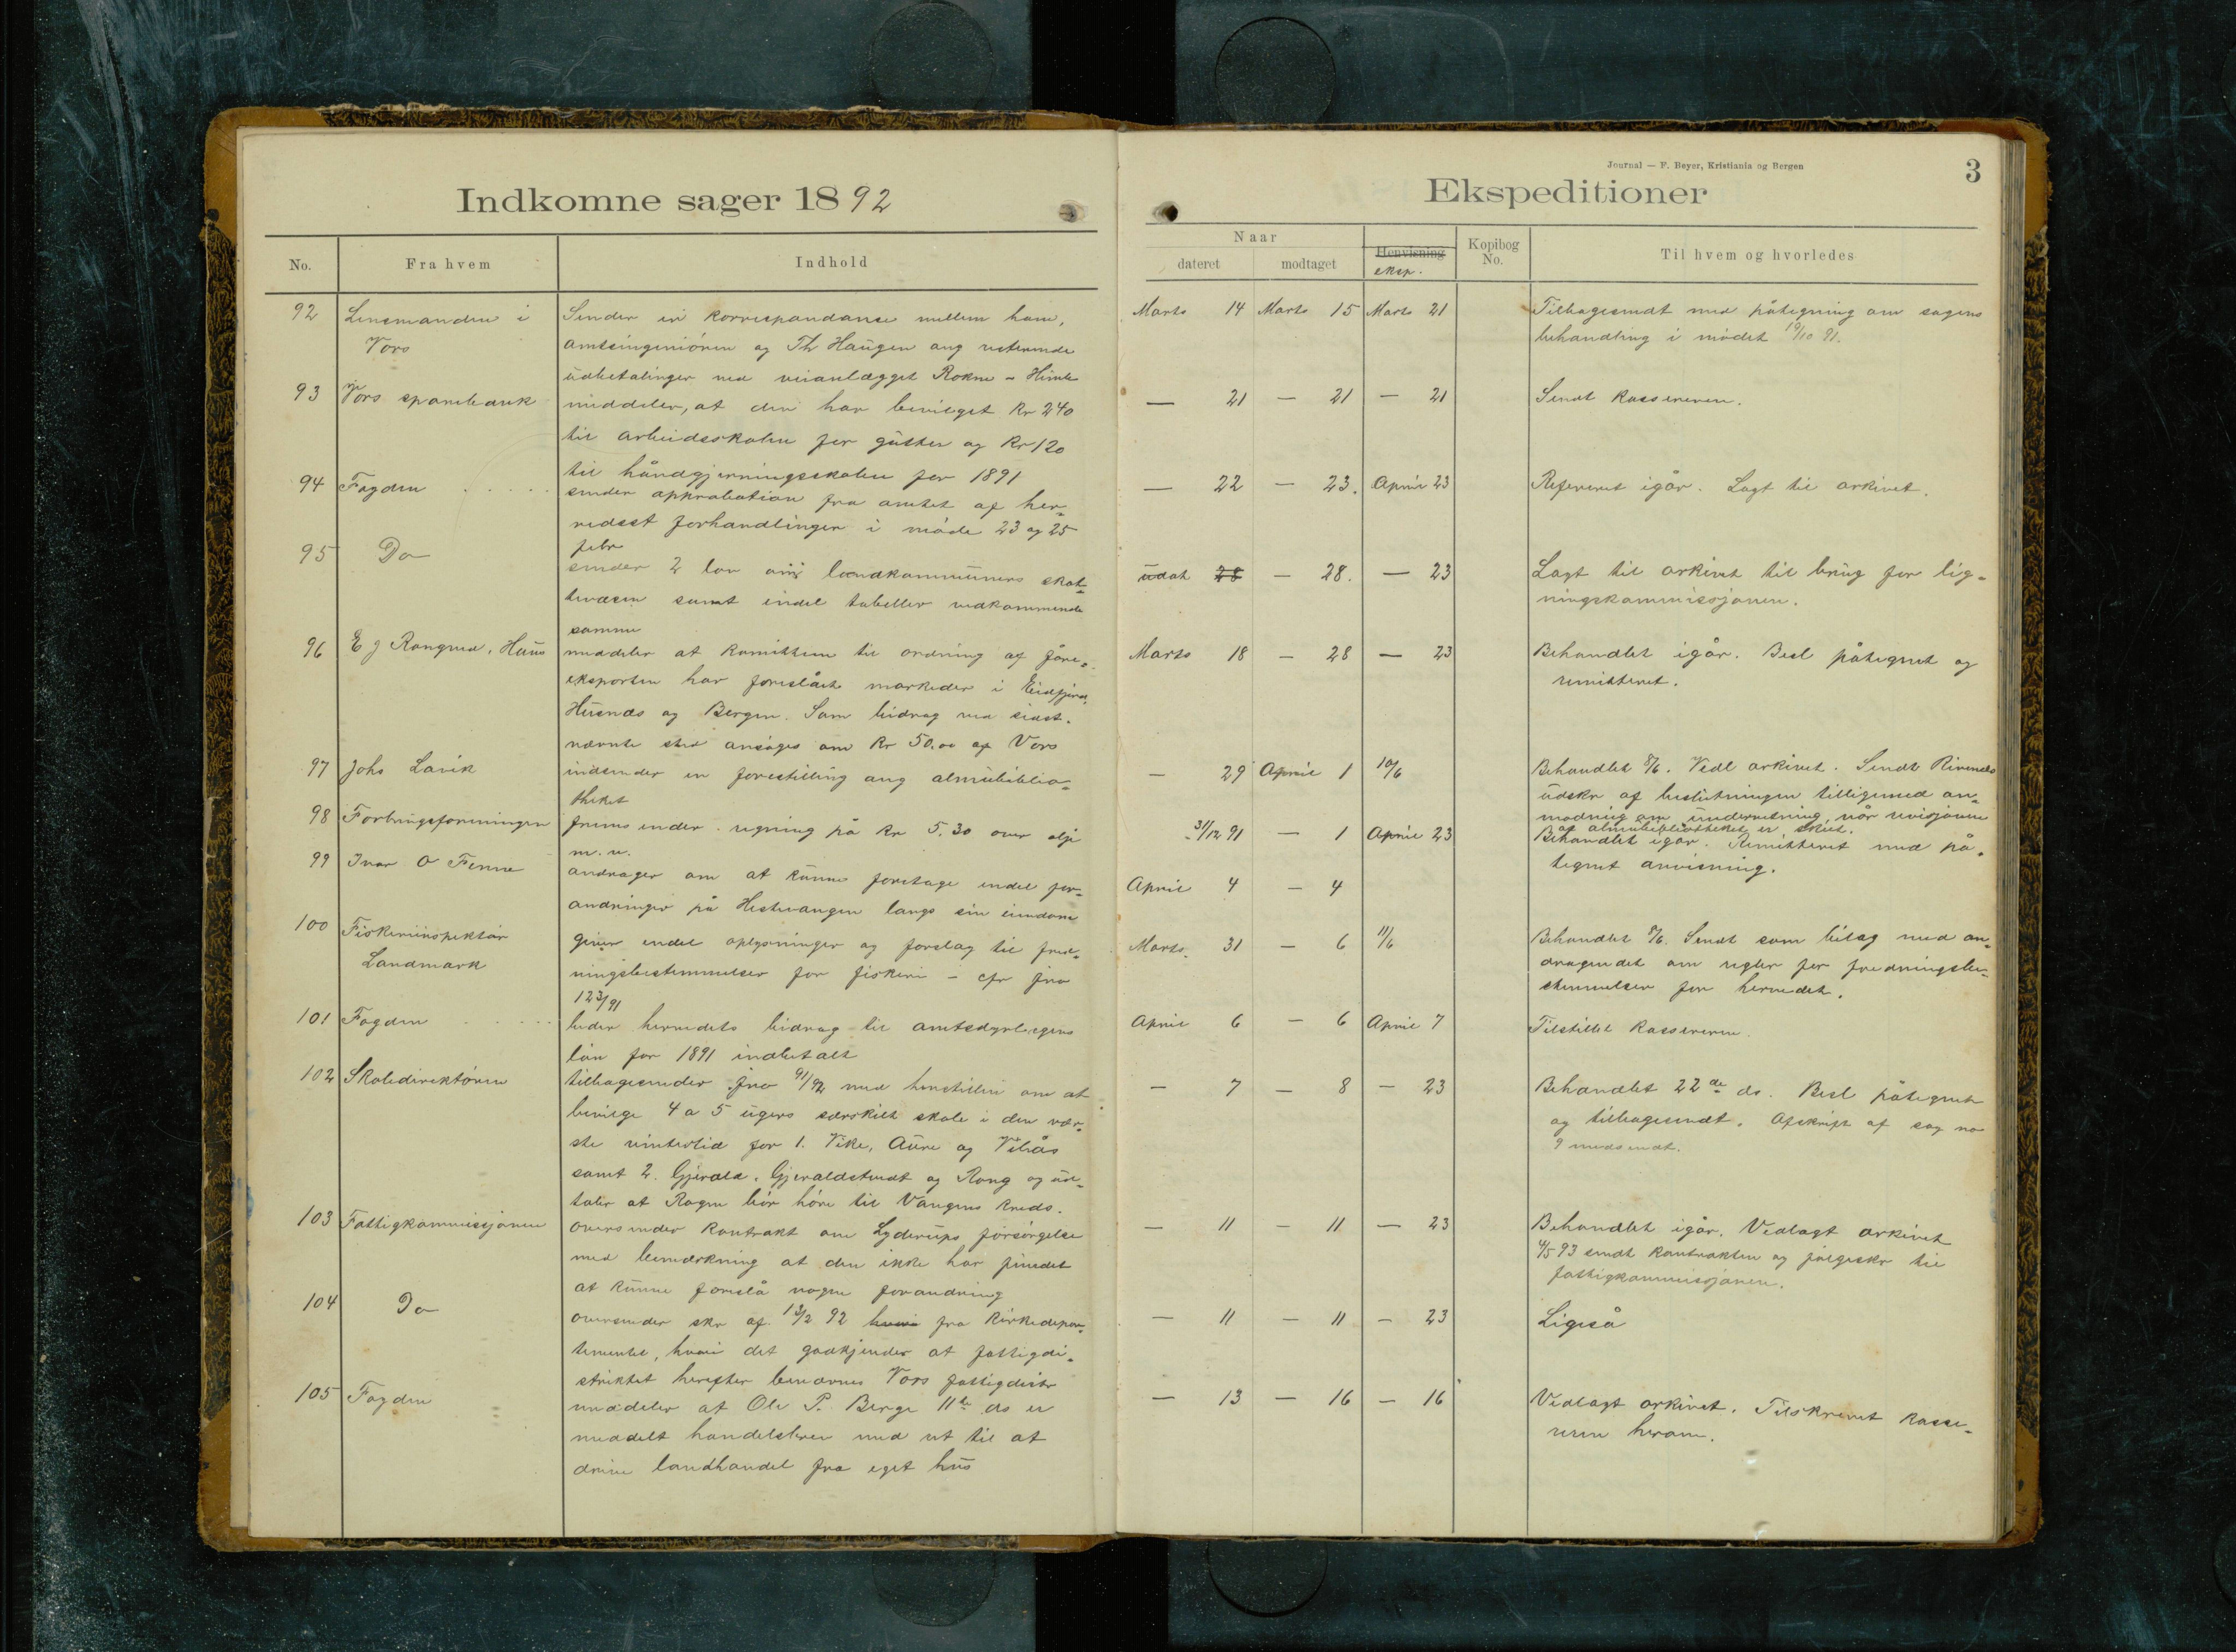 Indkomne sager 1892
No.
Fra hvem
Indhold
92
Lensmanden i
Vors
Sender en korrespondanse mellem ham,
amtsingeniøren og Th Haugen ang resterende
udbetalinger ved veianlægget Rokne - Himle
93
Vors sparebank
meddeler, at den har bevilget Kr 240
til arbeidsskolen for gutter og Kr 120
til håndgjerningsskolen for 1891
94
Fogden
sender approbation fra amtet af her-
redsst forhandlinger i møde 23 og 25
febr
95
Do
sender 2 lov ang landkommuners skat-
tevæsen samt endel tabeller vedkommende
samme
96
E J Rongved, Huus
meddeler at komitteen til ordning af fåre-
eksporten har foreslået markeder i Eidfjord,
Husnæs og Bergen. Som bidrag ved sidst-
nævnte sted ansøges om Kr 50.00 af Vors
97
Johs Lavik
indsender en forestilling ang almubiblio-
theket
98
Forbrugsforeningen
fremsender regning på Kr 5.30 over olje
m. v.
99
Ivar O Finne
andrager om at kunne foretage endel for-
andringer på Hestavangen langs sin eiendom
100
Fiskeriinspektør
Landmark
giver endel oplysninger og forslag til fred-
ningsbestemmelser for fiskeri - cfr jno
123/91
101
Fogden
beder herredets bidrag til amtsdyrlægens
løn for 1891 indbetalt
102
Skoledirektøren
tilbagesender jno 91/92 med henstillen om at
bevilge 4 a 5 ugers særskilt skole i den vær-
ste vintertid for 1. Vike, Aure og Vikås
samt 2. Gjerald, Gjeraldstvedt og Rong og ud-
taler at Rogne bør høre til Vangens kreds.
103
Fattigkommissjonen
oversender kontrakt om Lyderups forsørgelse
med bemærkning at den ikke har funnet
at kunne foreslå nogen forandring
104
Do
oversender skr af 13/2 92 hvori fra Kirkedepar-
tementet, hvori det godkjender at fattigdi-
striktet herefter benævnes Vors fattigdistr
105
Fogden
meddeler at Ole P. Berge 11te ds er
meddelt handelsbrev med ret til at
drive landhandel fra eget hus
Journal — F. Beyer, Kristiania og Bergen
3
Ekspeditioner
Naar
dateret
modtaget
Henvisning
eksp.
Kopibog
No.
Til hvem og hvorledes
Marts 14 Marts 15 Marts 21
Tilbagesendt med påtegning om sagens
behandling i mødet 19/10 91.
— 21 — 21 — 21
Sendt kassereren.
— 22 — 23. April 23
Refereret igår. Lagt til arkivet.
udat 28 — 28. — 23
Lagt til arkivet til brug for lig-
ningskommissjonen.
Marts 18 — 28 — 23
Behandlet igår. Besl påtegnet og
remitteret.
— 29 April 1 10/6
Behandlet 8/6. Vedl arkivet. Sendt
udskr af beslutningen tilligemed an-
modning om underretning, når revisjonen
af almubibliotheket er skeet.
31/12 91 — 1 April 23
Behandlet igår. Remitteret med på-
tegnet anvisning.
April 4 — 4
Marts. 31 — 6 11/6
Behandlet 8/6. Sendt som bilag med an-
dragendet om regler for fredningsbe-
stemmelser for herredet.
April 6 — 6 April 7
Tilstillet kassereren.
— 7 — 8 — 23
Behandlet 22de ds. Besl påtegnet
og tilbagesendt. Afskrift af sag no
9 medsendt.
— 11 — 11 — 23
Behandlet igår. Vedlagt arkivet
4/5 93 sendt kontrakten og følgeskr til
fattigkommissjonen.
— 11 — 11 — 23
Ligeså
— 13 — 16 — 16
Vedlagt arkivet. Tilskrevet kasse-
reren herom.